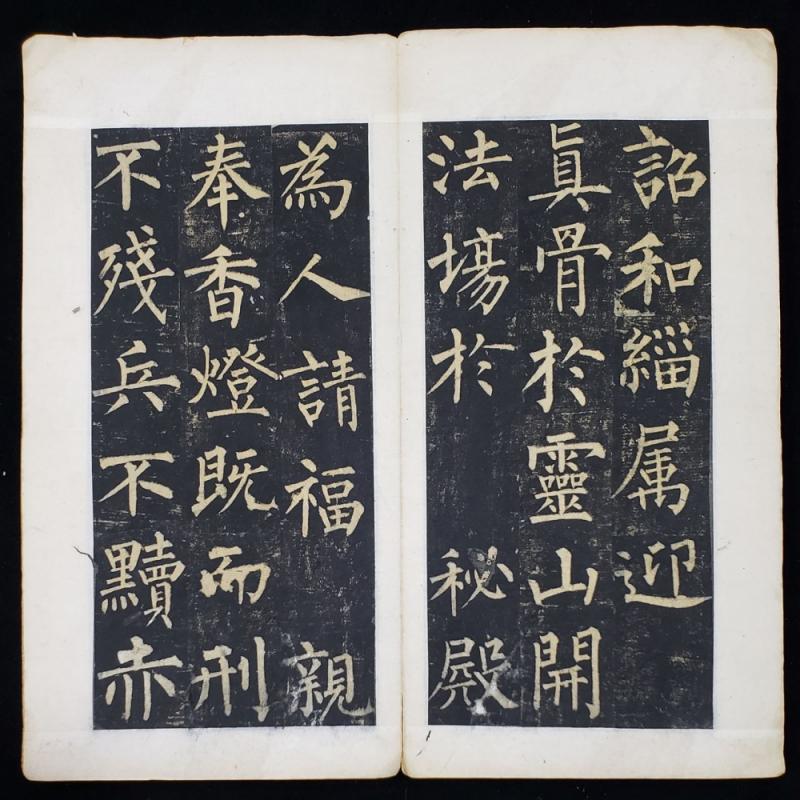 詔和緇属迎
眞骨於靈山開
法場於秘殿
為人請福親
奉香燈既而刑
不殘兵不黷赤